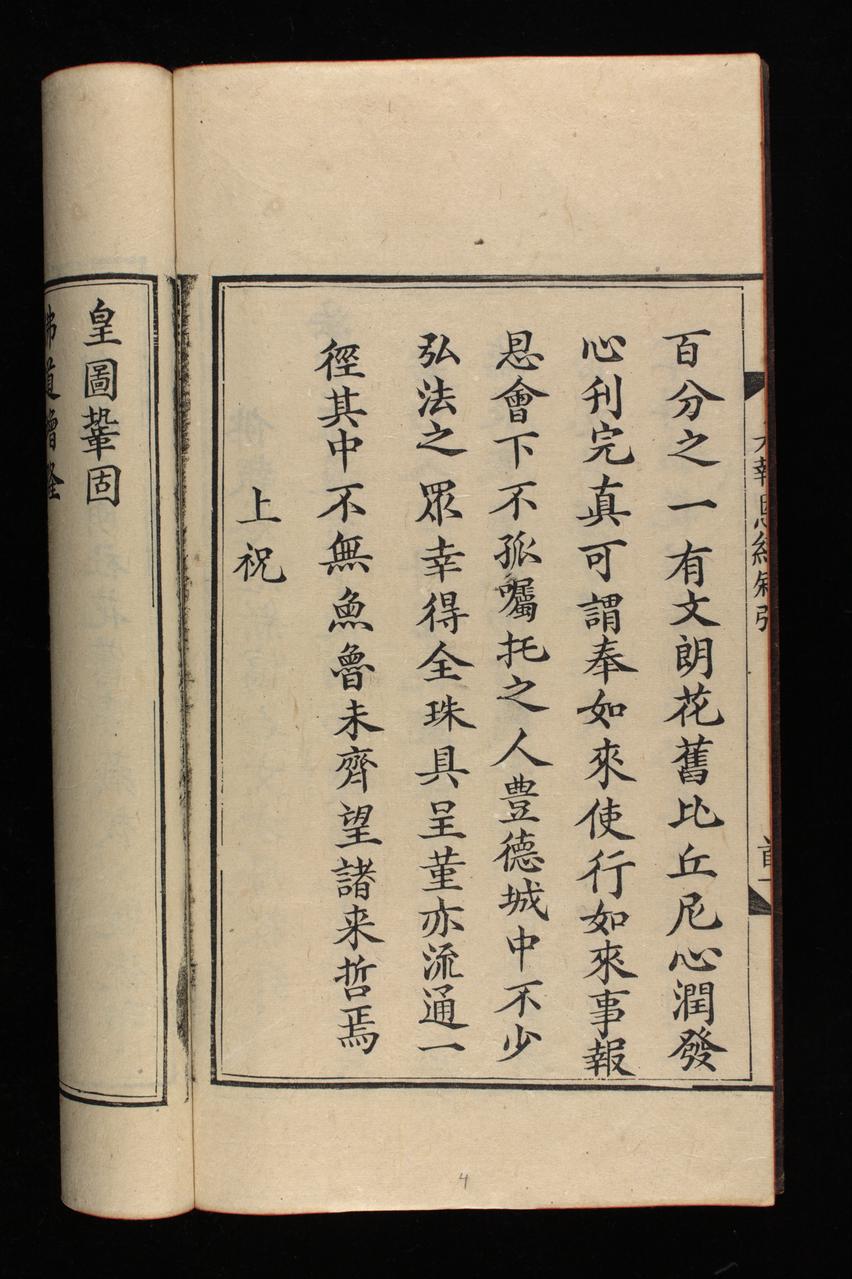 報恩經
首一
百分之一有文朗花舊比丘尼心潤發
心刋完真可謂奉如來使行如來事報
恩會下不孤囑托之人豊德城中不少
弘法之眾幸得全珠具呈董亦流通一
徑其中不無魚魯未齊望諸来哲焉
上祝
皇圖鞏固
道